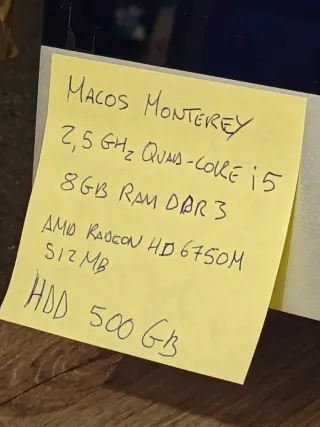 MACOS MONTEREY
2,5 GHz QUAD-CORE i5
8GB RAM DDR3
AMD RADEON HD 6750M
512 MB
HDD 500 GB